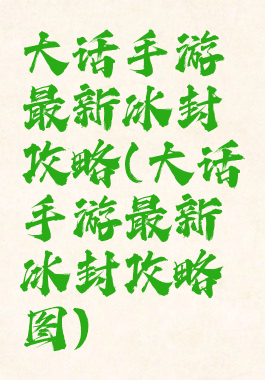 大话手游
最新冰封
攻略(大话
手游最新
冰封攻略
图)